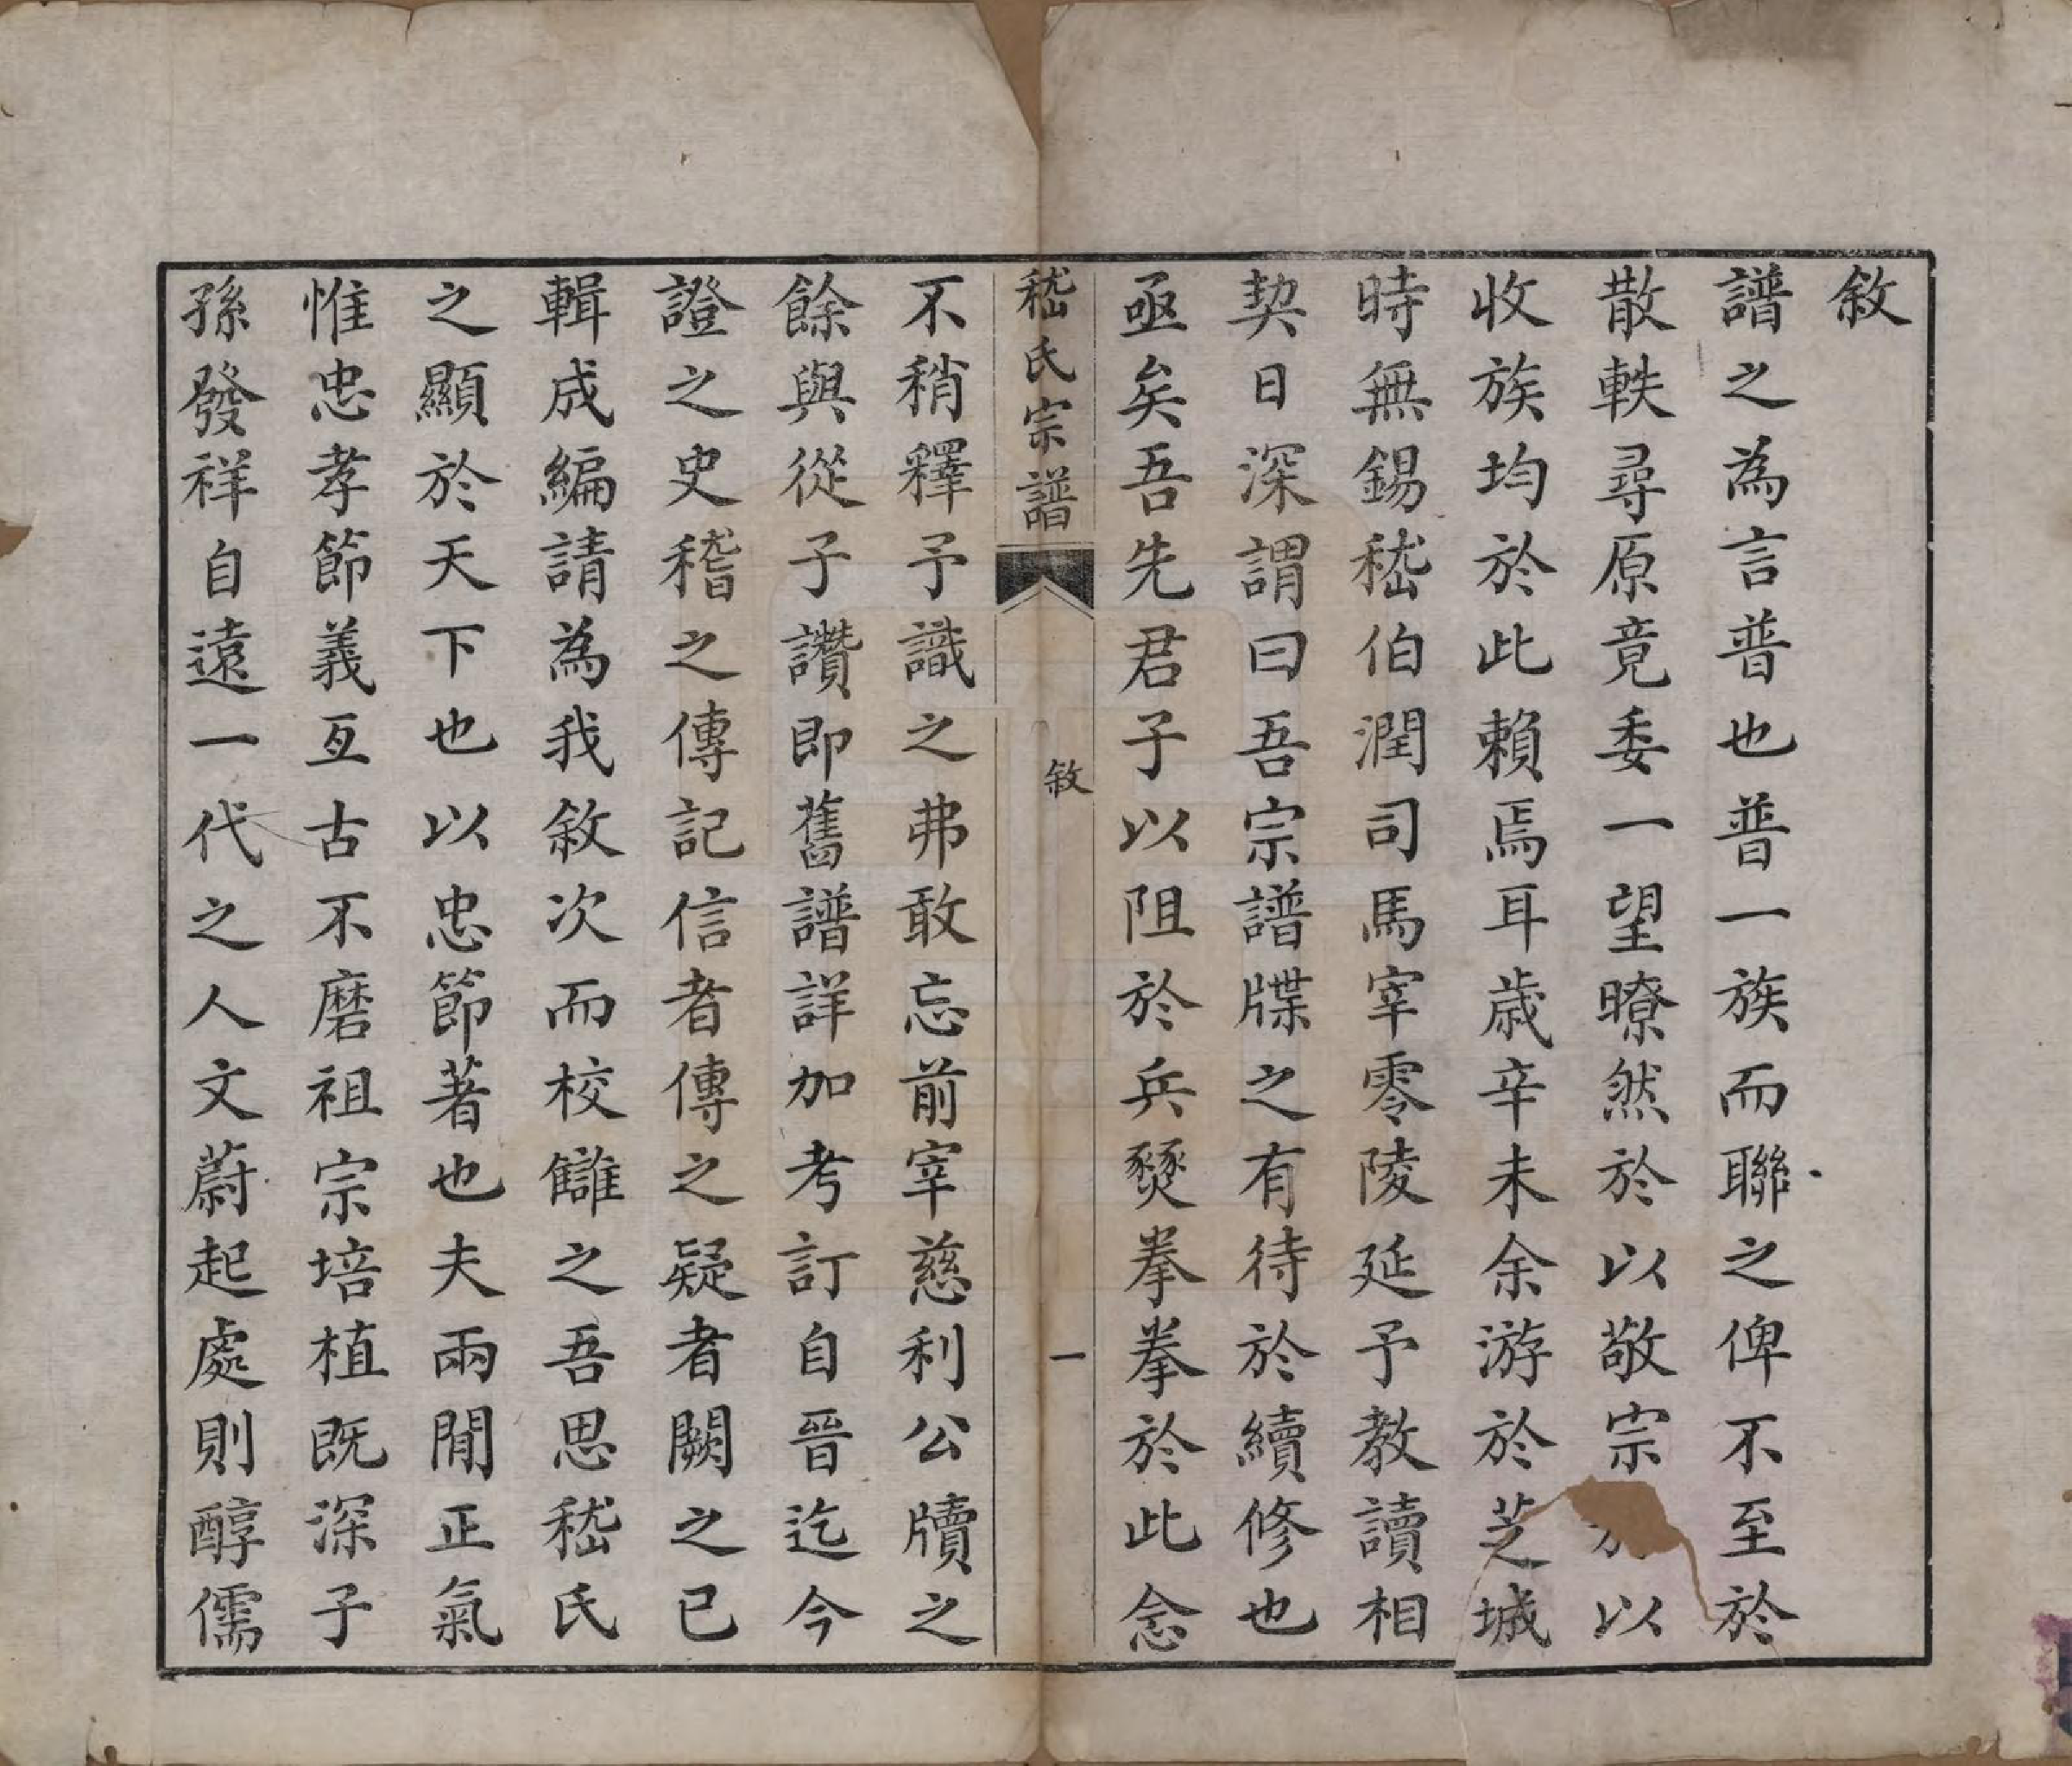 敘
譜之為言普也普一族而聯之俾不至於
散軼尋原竟委一望暸然於以敬宗以
收族均於此賴焉耳歲辛未余游於芝城
時無錫嵇伯潤司馬宰零陵延予教讀相
契日深謂曰吾宗譜牒之有待於續修也
亟矣吾先君子以阻於兵燹拳拳於此念
嵇氏宗譜
敘
一
不稍釋予識之弗敢忘前宰慈利公牘之
餘與從子讚即舊譜詳加考訂自晉迄今
證之史稽之傳記信者傳之疑者闕之已
輯成編請為我敘次而校讎之吾思嵇氏
之顯於天下也以忠節著也夫兩閒正氣
惟忠孝節義亙古不磨祖宗培植既深子
孫發祥自遠一代之人文蔚起處則醇儒